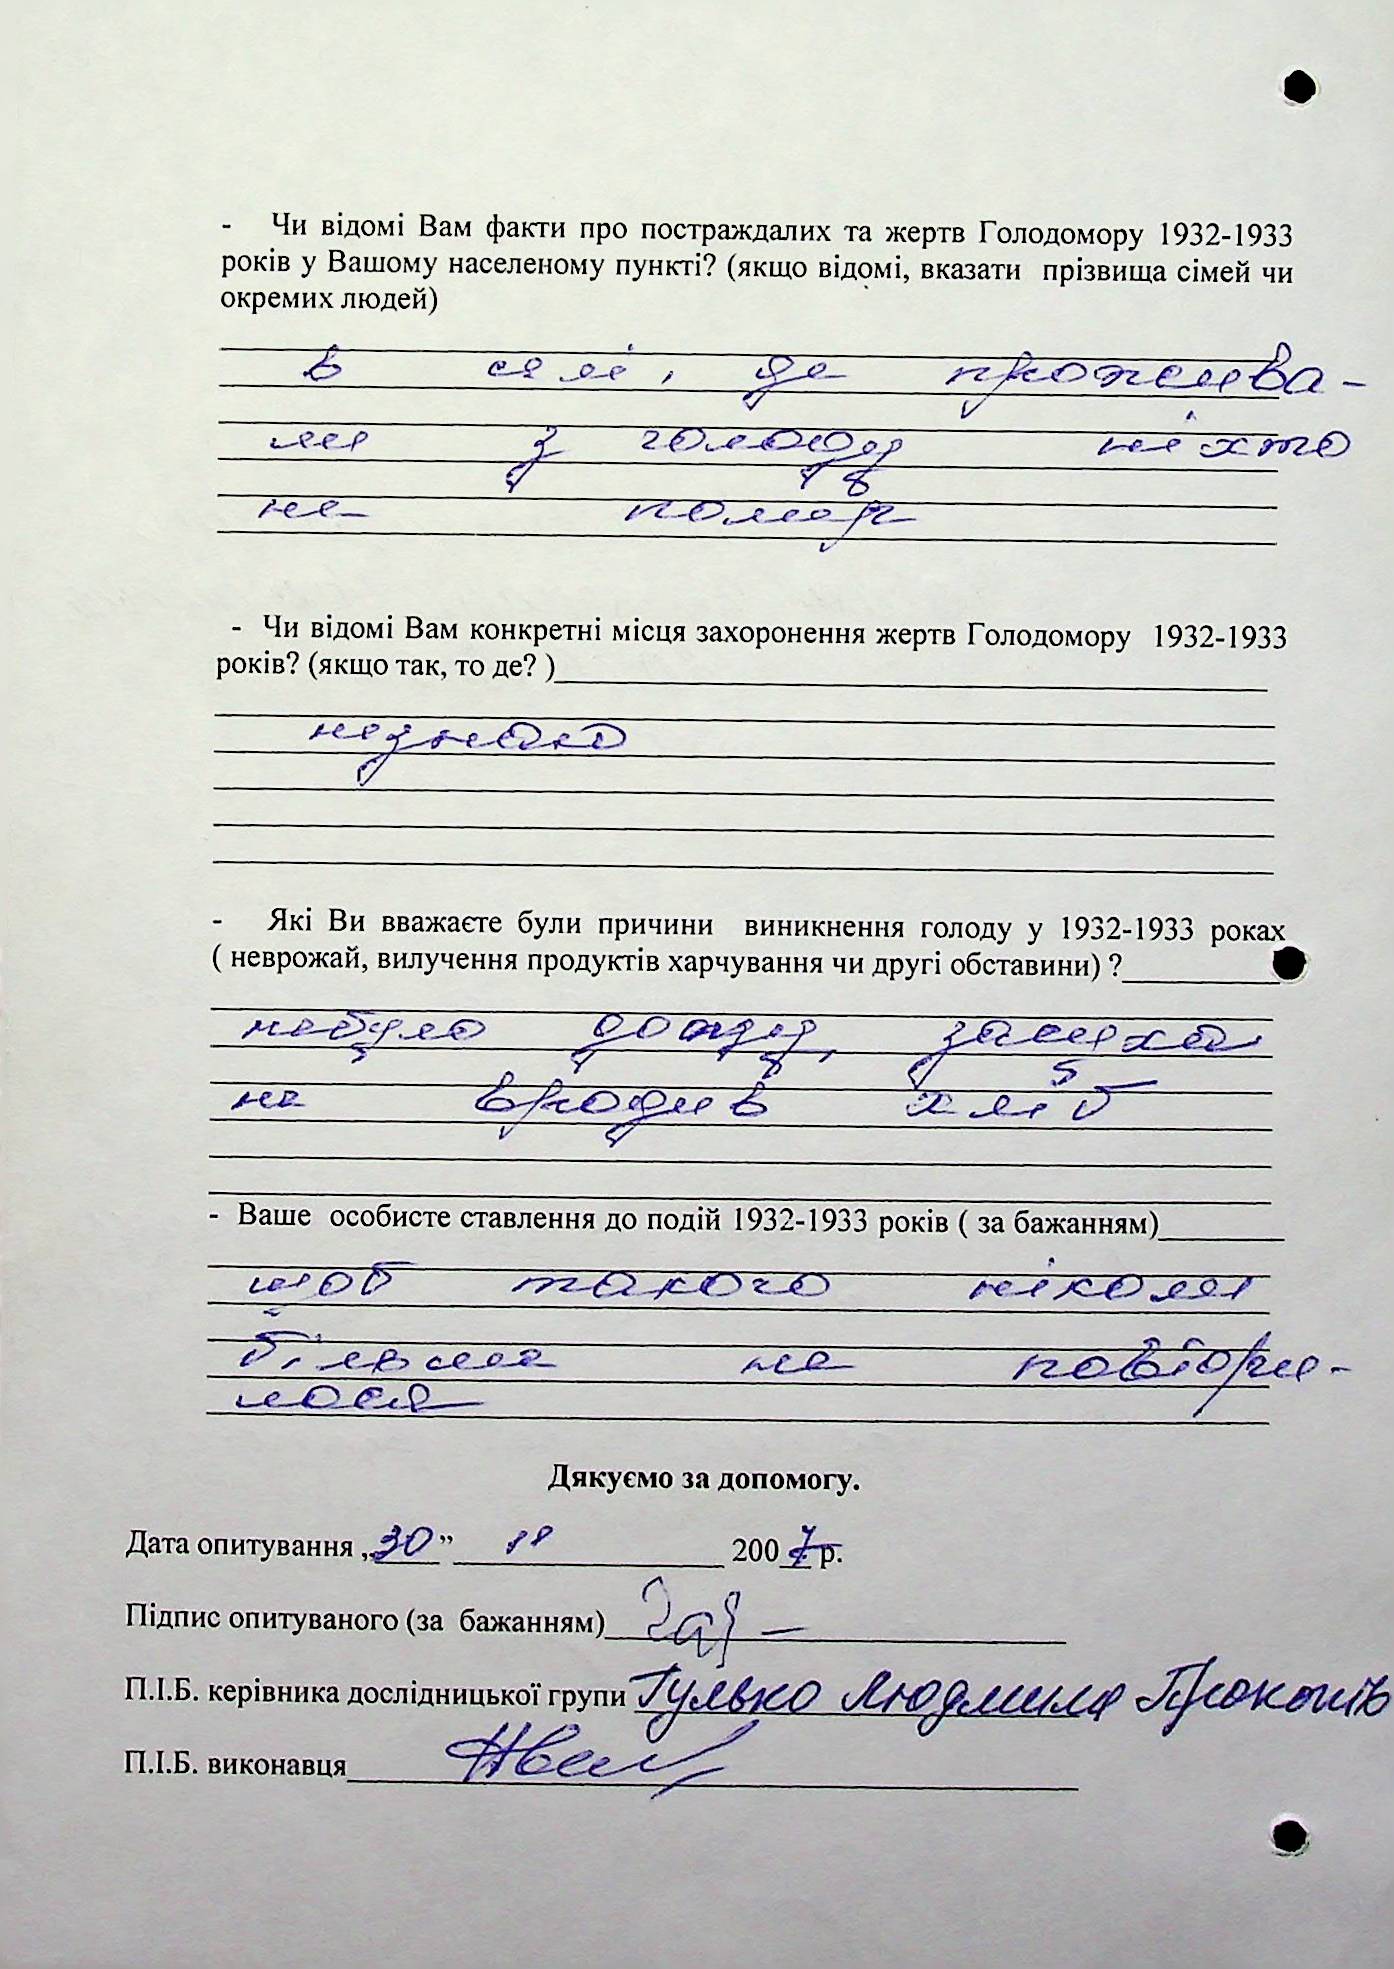 - Чи відомі Вам факти про постраждалих та жертв Голодомору 1932-1933
років у Вашому населеному пункті? (якщо відомі, вказати прізвища сімей чи
окремих людей)
в селі, де прожива-
ли з голоду ніхто
не помер
- Чи відомі Вам конкретні місця захоронення жертв Голодомору 1932-1933
років? (якщо так, то де? )
незнаю
- Які Ви вважаєте були причини виникнення голоду у 1932-1933 роках
( неврожай, вилучення продуктів харчування чи другі обставини) ?
небуло дощу, засуха
не вродив хліб
- Ваше особисте ставлення до подій 1932-1933 років ( за бажанням)
щоб такого ніколи
більше не повтори-
лося
Дякуємо за допомогу.
Дата опитування „30" 11 2007 р.
Підпис опитуваного (за бажанням)
П.І.Б. керівника дослідницької групи Гулько Людмила Прокопів
П.І.Б. виконавця